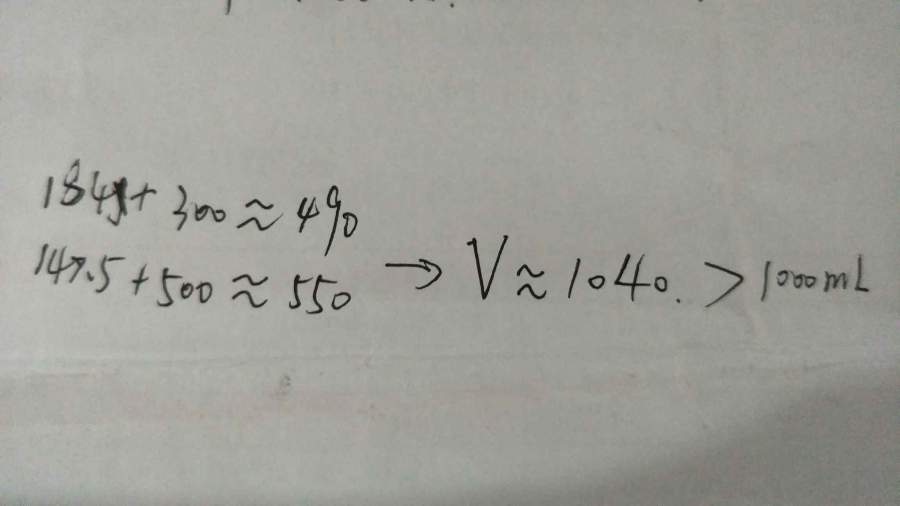 184+ 300 ≈ 490
147.5 + 500 ≈ 550 → V ≈ 1040. > 1000mL